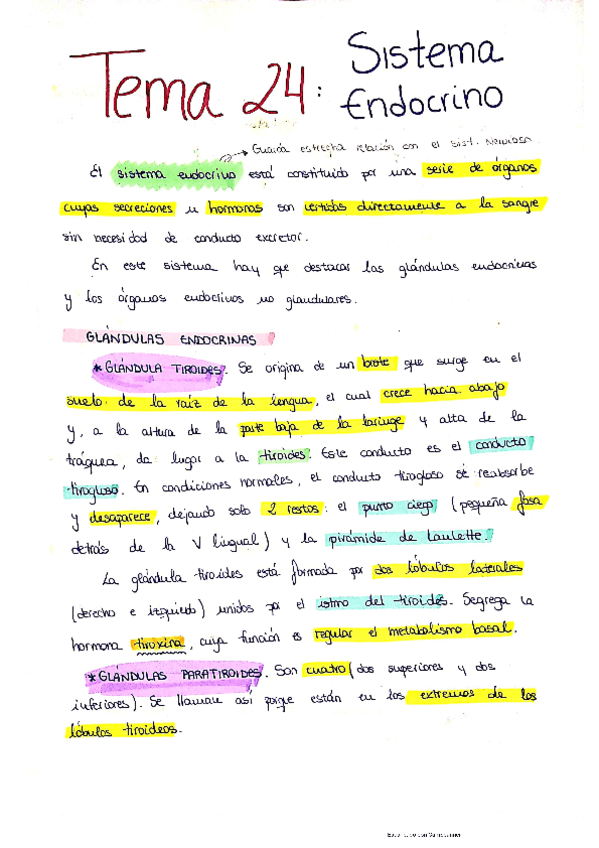 Tema 24: Sistema
Endocrino
→ Guarda estrecha relación con el sist. Nervioso.
El sistema endocrino está constituido por una serie de órganos
cuyas secreciones u hormonas son vertidas directamente a la sangre
sin necesidad de conducto excretor.
En este sistema hay que destacar las glándulas endocrinas
y los órganos endocrinos no glandulares.
GLÁNDULAS ENDOCRINAS
* GLÁNDULA TIROIDES. Se origina de un brote que surge en el
suelo de la raíz de la lengua, el cual crece hacia abajo
y, a la altura de la parte baja de la laringe y alta de la
tráquea, da lugar a la tiroides. Este conducto es el conducto
tirogloso. En condiciones normales, el conducto tirogloso se reabsorbe
y desaparece, dejando solo 2 restos: el punto ciego (pequeña fosa
detrás de la V lingual) y la pirámide de Laulette.
La glándula tiroides está formada por dos lóbulos laterales
(derecho e izquierdo) unidos por el istmo del tiroides. Segrega la
hormona tiroxina, cuya función es regular el metabolismo basal.
* GLÁNDULAS PARATIROIDES. Son cuatro (dos superiores y dos
inferiores). Se llaman así porque están en los extremos de los
lóbulos tiroideos.